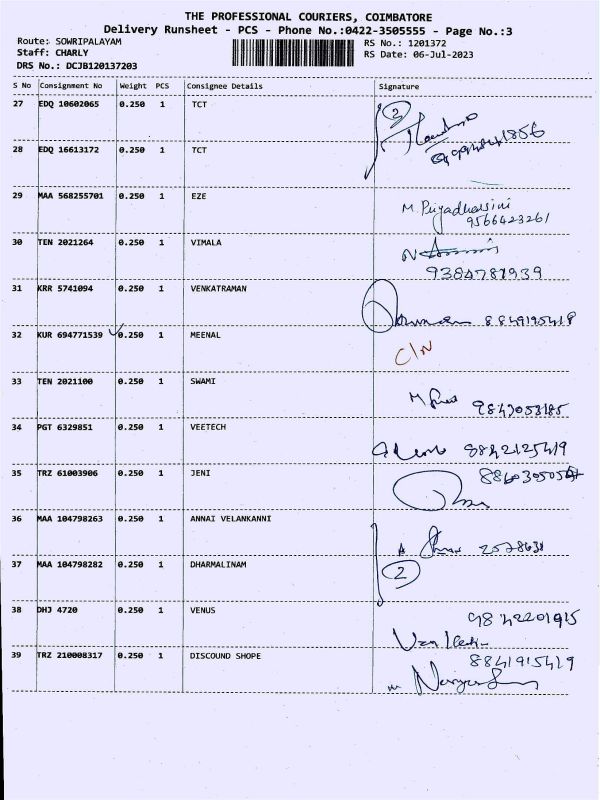 THE PROFESSIONAL COURIERS, COIMBATORE
Delivery Runsheet - PCS - Phone No.:0422-3505555 - Page No.:3
Route: SOWRIPALAYAM
RS No.: 1201372
Staff: CHARLY
RS Date: 06-Jul-2023
DRS No.: DCJB120137203
S No Consignment No Weight PCS Consignee Details Signature
27 EDQ 10602065 0.250 1 TCT
2
28 EDQ 16613172 0.250 1 TCT
29 MAA 568255701 0.250 1 EZE
M. Priyadharsini
9566423261
30 TEN 2021264 0.250 1 VIMALA
9384781939
31 KRR 5741094 0.250 1 VENKATRAMAN
32 KUR 694771539 0.250 1 MEENAL
C/N
33 TEN 2021100 0.250 1 SWAMI
34 PGT 6329851 0.250 1 VEETECH
8842125419
35 TRZ 61003906 0.250 1 JENI
36 MAA 104798263 0.250 1 ANNAI VELANKANNI
37 MAA 104798282 0.250 1 DHARMALINAM
2
38 DHJ 4720 0.250 1 VENUS
9842201915
39 TRZ 210008317 0.250 1 DISCOUND SHOPE
8841915419